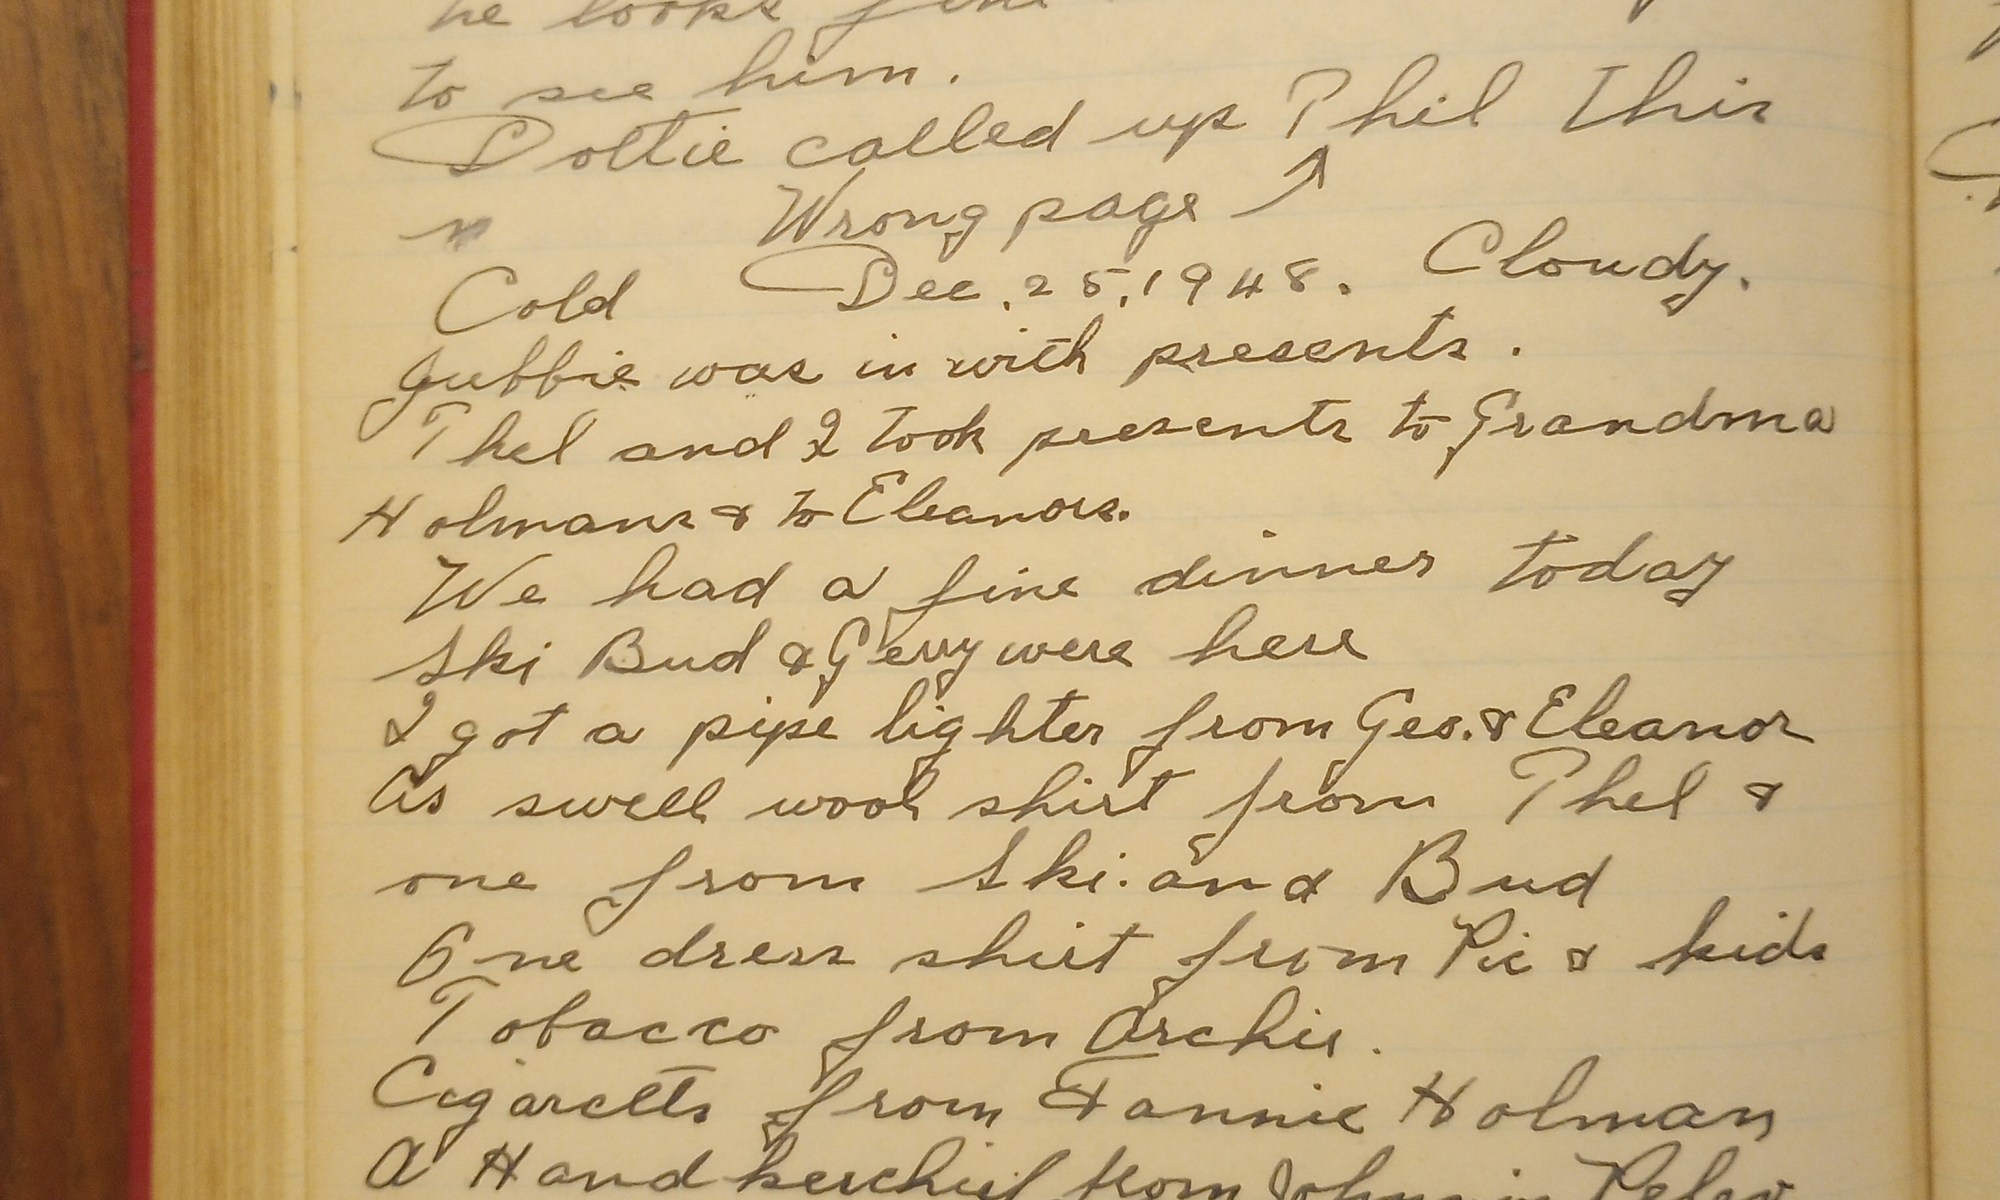 he looks fine
to see him.
Dottie called up Phil This
Wrong page ↗
Cold Dec. 25, 1948. Cloudy.
Jubbie was in with presents.
Thel and I took presents to Grandma
Holmans & to Eleanors.
We had a fine dinner today
Ski Bud & Gerry were here
I got a pipe lighter from Geo. & Eleanor
As swell wool shirt from Thel &
one from Ski. and Bud
One dress shirt from Pic & kids
Tobacco from Archie.
Cigaretts from Fannie Holman
A Handkerchief from